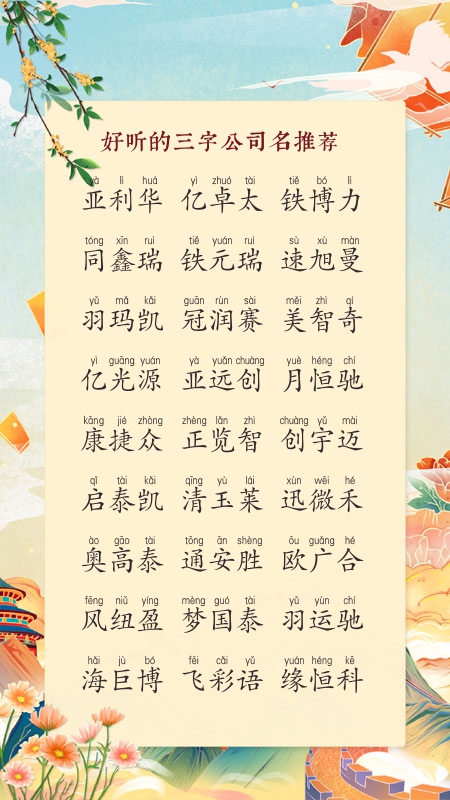 好听的三字公司名推荐
yà lì huá yì zhuó tài tiě bó lì
亚利华 亿卓太 铁博力
tóng xīn ruì tiě yuán ruì sù xù màn
同鑫瑞 铁元瑞 速旭曼
yǔ mǎ kǎi guān rùn sài měi zhì qí
羽玛凯 冠润赛 美智奇
yì guāng yuán yà yuǎn chuàng yuè héng chí
亿光源 亚远创 月恒驰
kāng jié zhòng zhèng lǎn zhì chuàng yǔ mài
康捷众 正览智 创宇迈
qǐ tài kǎi qīng yù lái xùn wēi hé
启泰凯 清玉莱 迅微禾
ào gāo tài tōng ān shèng ōu guǎng hé
奥高泰 通安胜 欧广合
fēng niǔ yíng mèng guó tài yǔ yùn chí
风纽盈 梦国泰 羽运驰
hǎi jù bó fēi cǎi yǔ yuán héng kē
海巨博 飞彩语 缘恒科